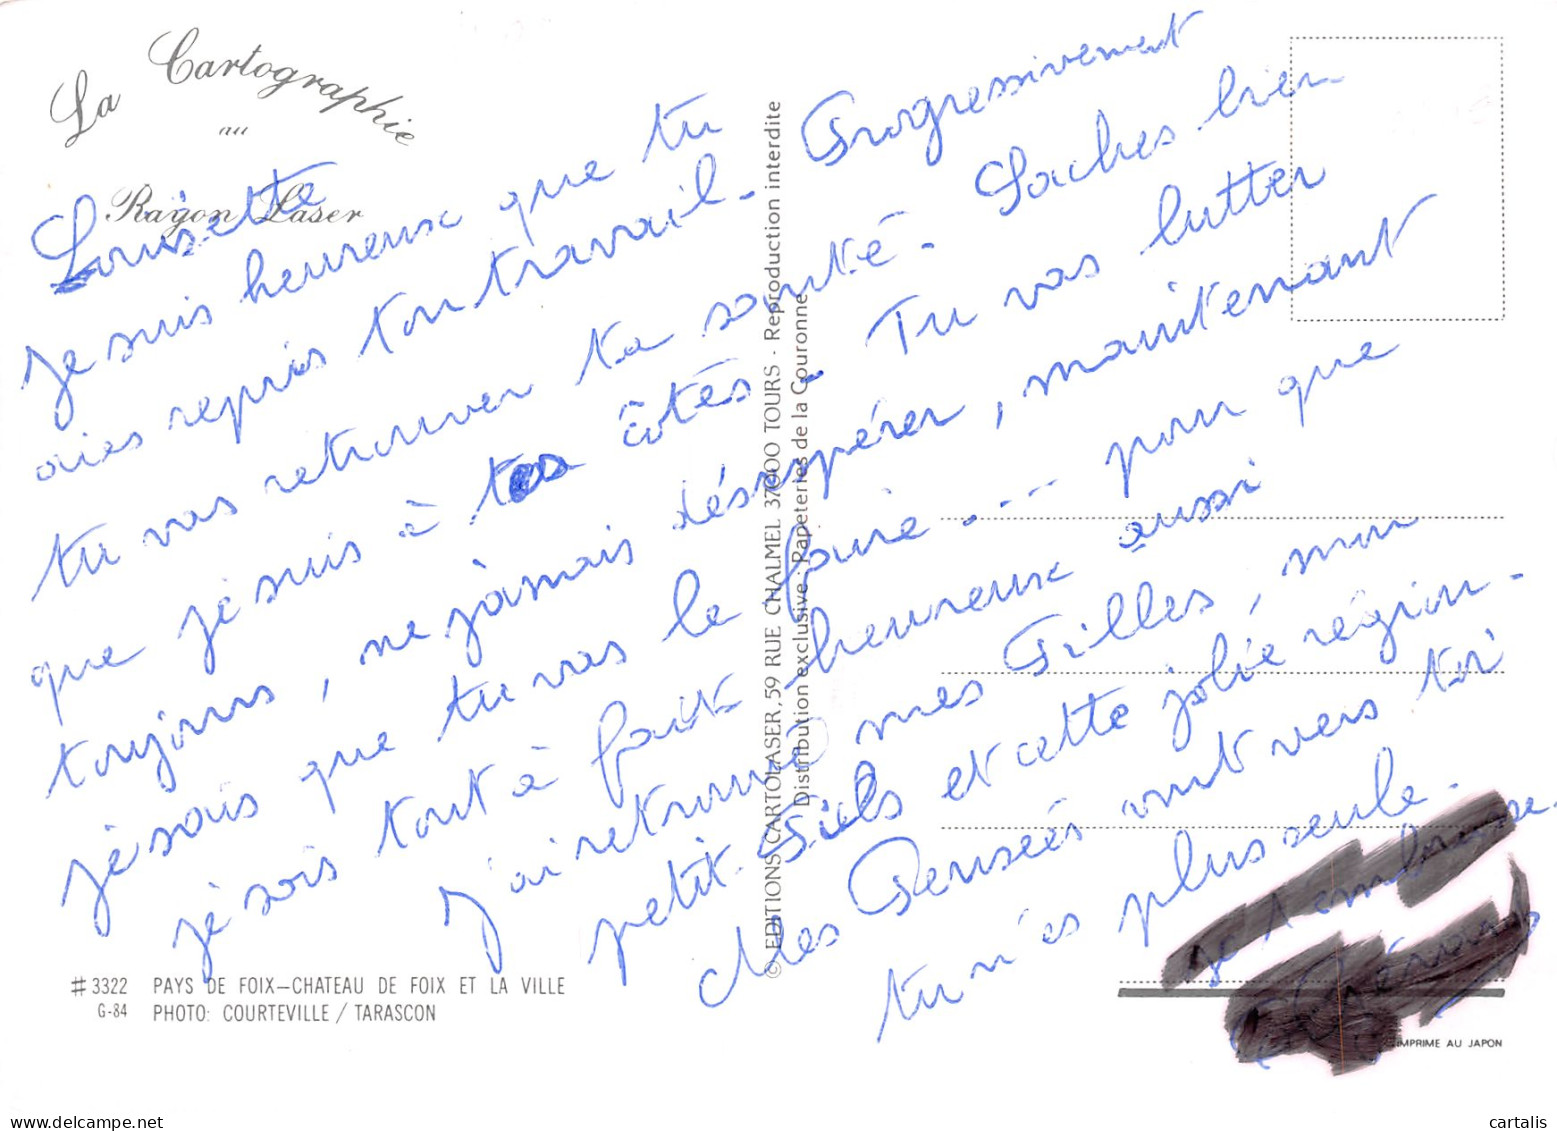 La Cartographie
au
Rayon Laser
Louisette
Je suis heureux que tu
aies repris ton travail. Progressivement
tu vas retrouver ta santé. Saches bien
que je suis à tes côtés. Tu vas lutter
toujours, ne jamais désespérer, maintenant
je sais que tu vas le faire.... pour que
je sois tout à fait heureux aussi
J'ai retrouvé mes Filles, mon
petit-Fils et cette jolie région.
Mes Pensées vont vers toi
tu n'es plus seule.
je t'embrasse.
© EDITIONS CARTOLASER, 59 RUE CHALMEL 37000 TOURS - Reproduction interdite
Distribution exclusive : Papeteries de la Couronne
# 3322 PAYS DE FOIX—CHATEAU DE FOIX ET LA VILLE
G-84 PHOTO: COURTEVILLE / TARASCON
IMPRIME AU JAPON
delcampe.net
cartalis